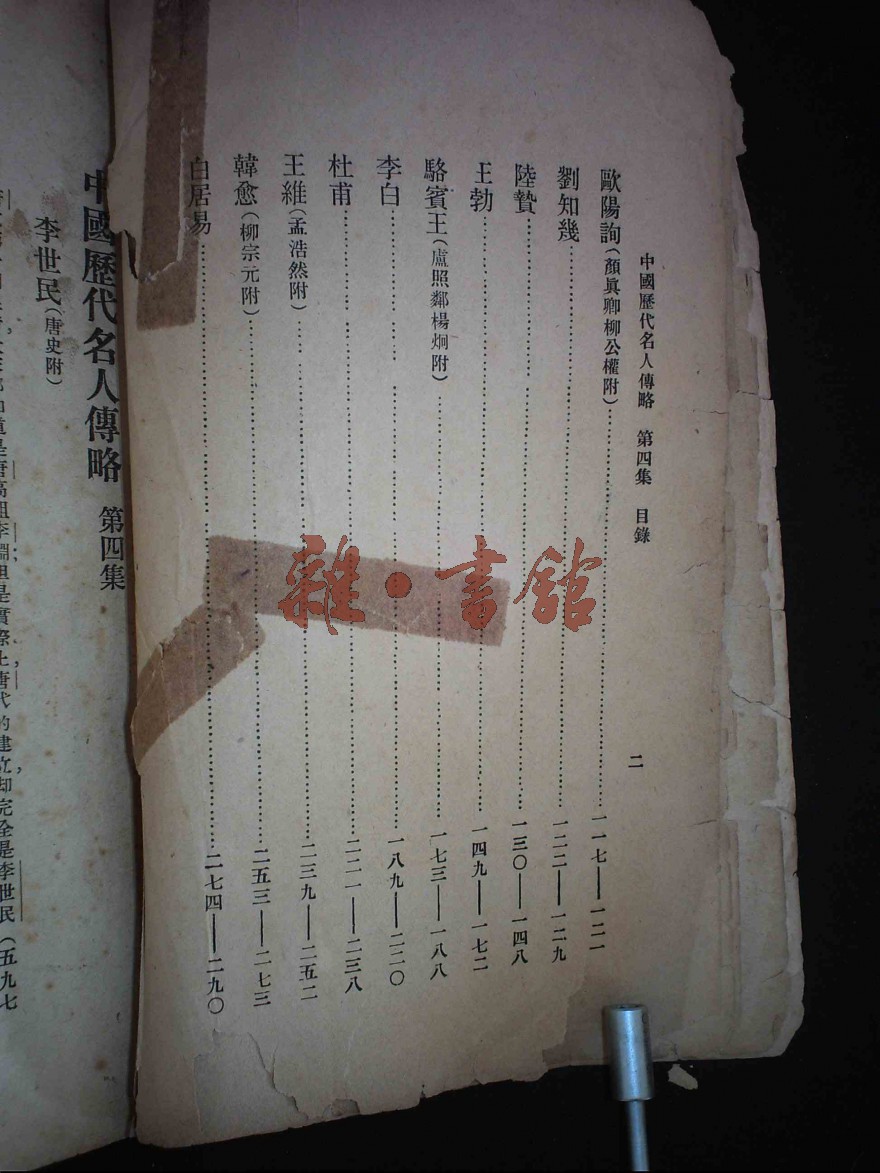 中國歷代名人傳略　第四集　目錄　二
歐陽詢（顏眞卿柳公權附）…一一七——一二一
劉知幾…一二二——一二九
陸贄…一三〇——一四八
王勃…一四九——一七二
駱賓王（盧照鄰楊炯附）…一七三——一八八
李白…一八九——二二〇
杜甫…二二一——二三八
王維（孟浩然附）…二三九——二五二
韓愈（柳宗元附）…二五三——二七三
白居易…二七四——二九〇
中國歷代名人傳略　第四集
李世民（唐史附）
是唐高祖李淵但是實際上唐代的建立却完全是李世民（五九七
雜·書館